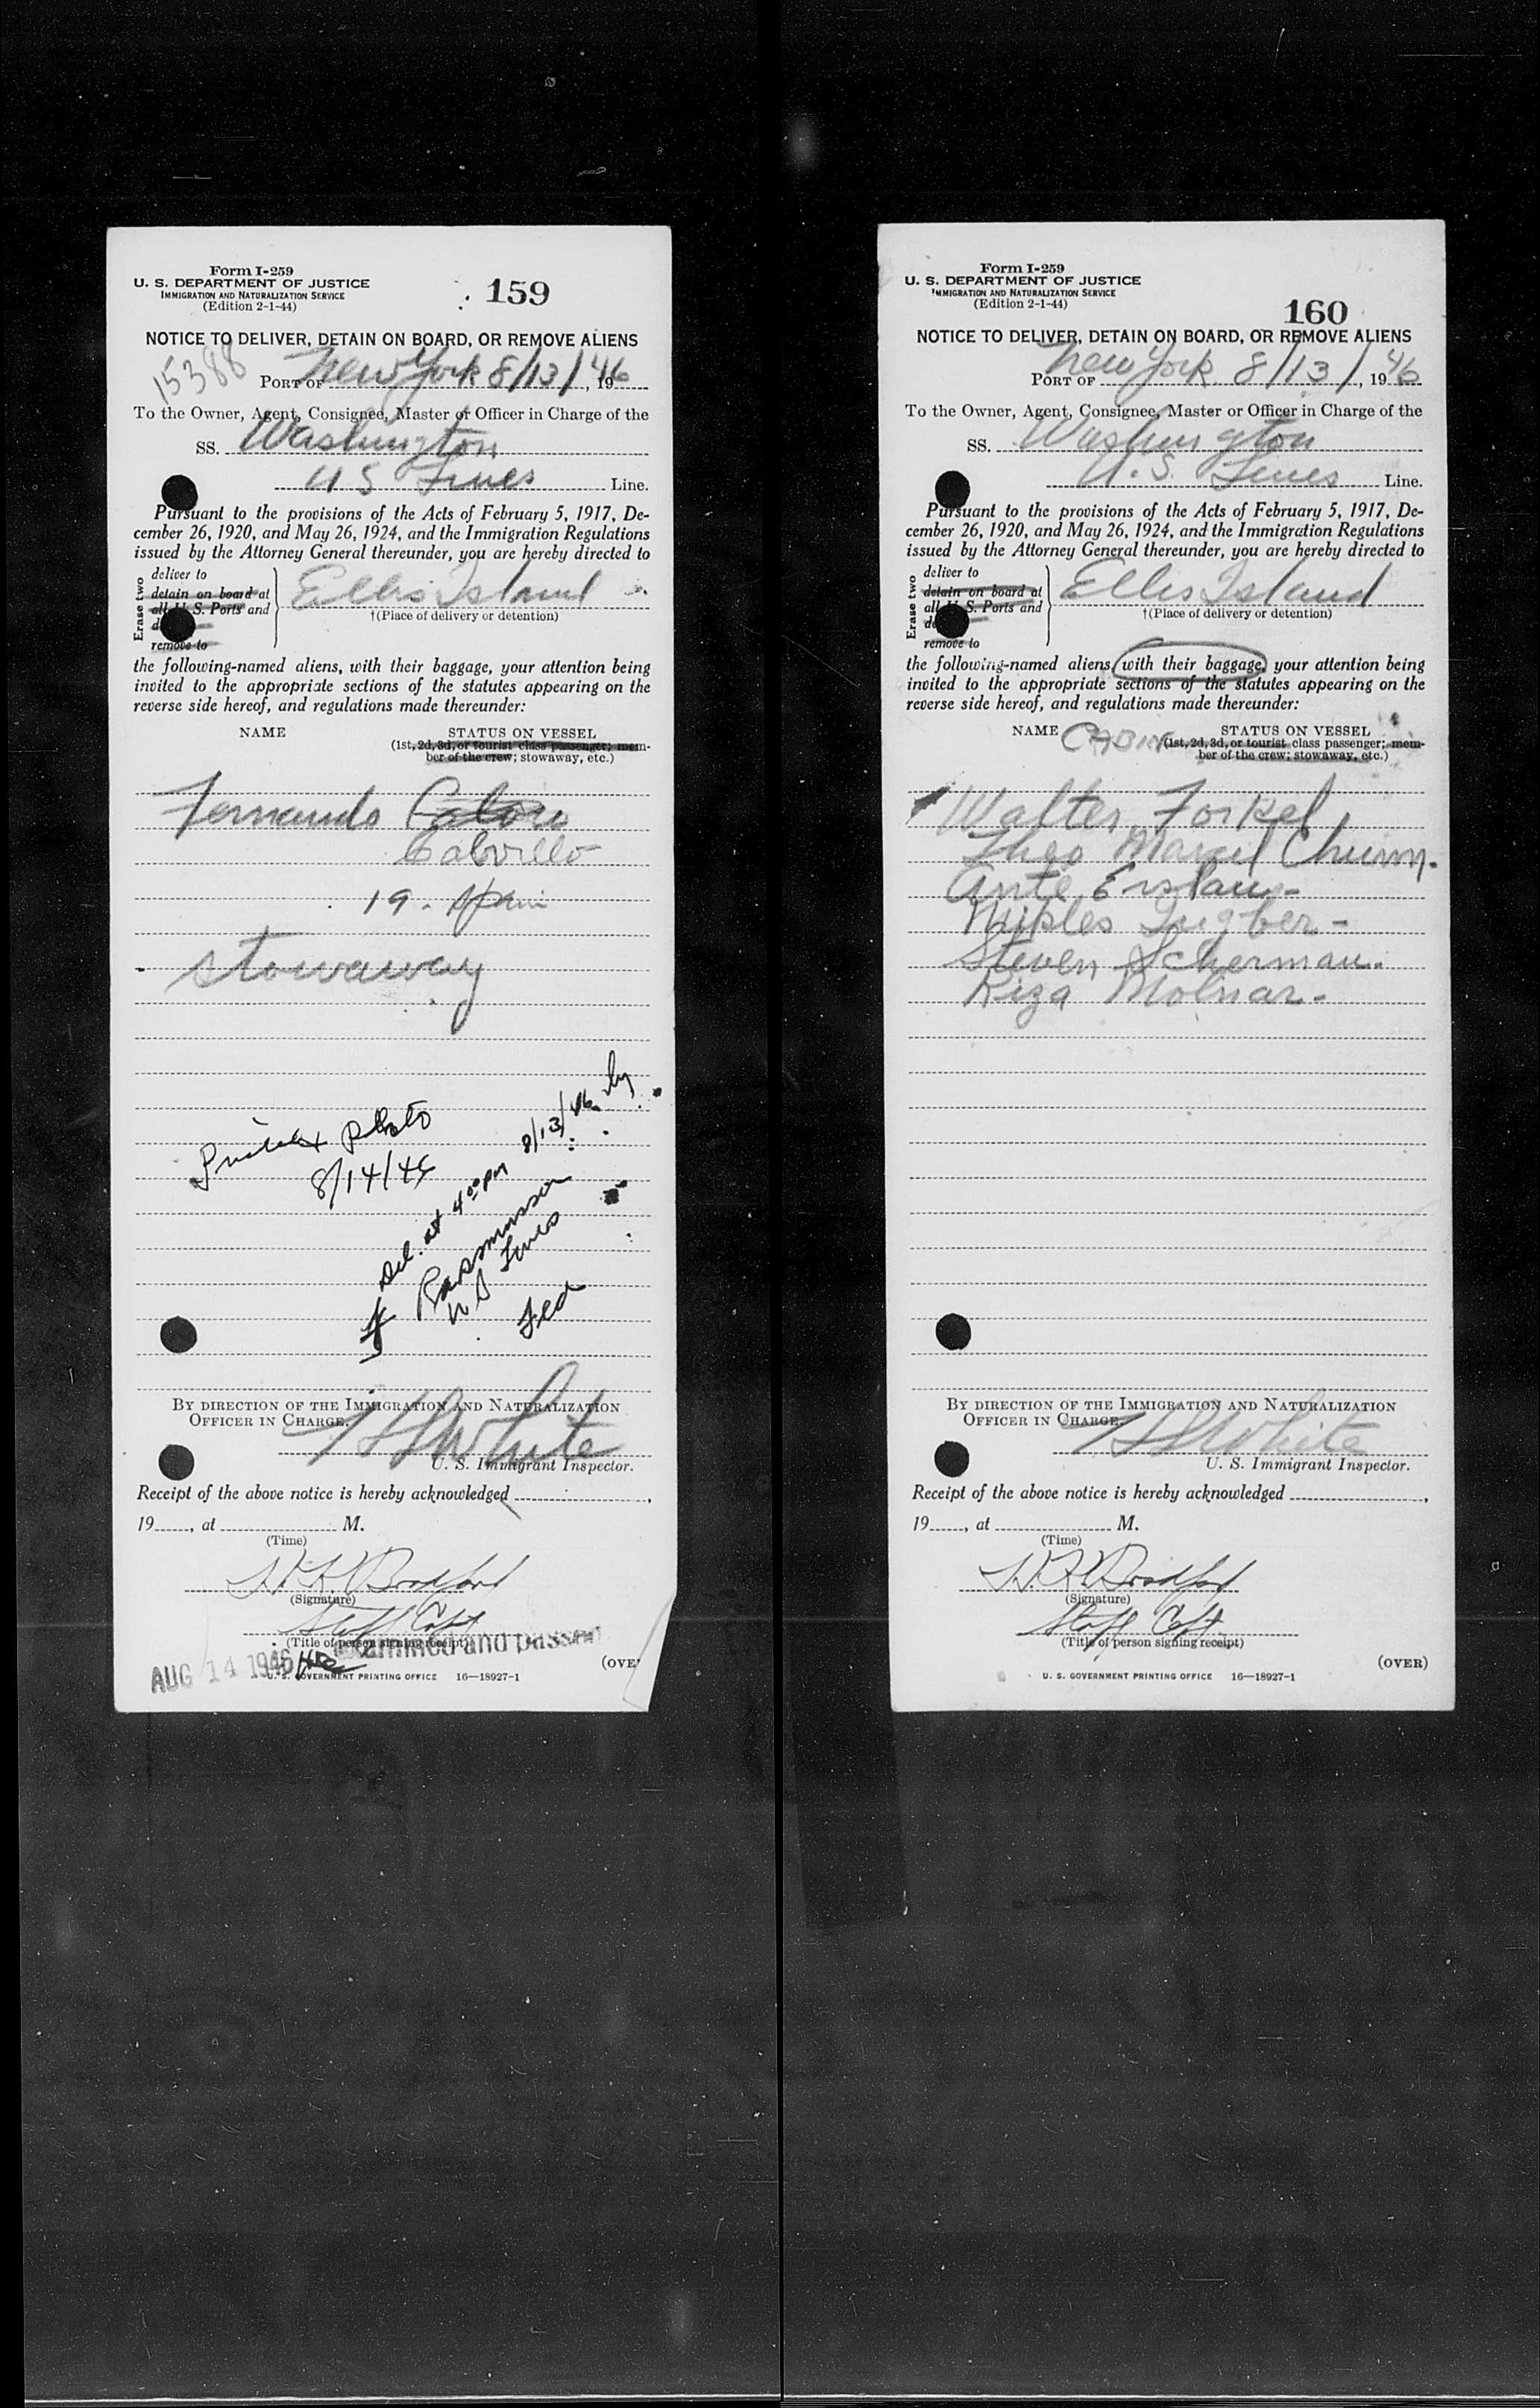 Form I-259
U. S. DEPARTMENT OF JUSTICE
IMMIGRATION AND NATURALIZATION SERVICE
(Edition 2-1-44)
159
NOTICE TO DELIVER, DETAIN ON BOARD, OR REMOVE ALIENS
15388
PORT OF New York 8/13/, 1946
To the Owner, Agent, Consignee, Master or Officer in Charge of the
SS. Washington
U S Lines Line.
Pursuant to the provisions of the Acts of February 5, 1917, De-
cember 26, 1920, and May 26, 1924, and the Immigration Regulations
issued by the Attorney General thereunder, you are hereby directed to
Erase two
deliver to
detain on board at
all U. S. Ports and
remove to
Ellis Island
†(Place of delivery or detention)
the following-named aliens, with their baggage, your attention being
invited to the appropriate sections of the statutes appearing on the
reverse side hereof, and regulations made thereunder:
NAME STATUS ON VESSEL
(1st, 2d, 3d, or tourist class passenger; mem-
ber of the crew; stowaway, etc.)
Fernando
Calvillo
19. Spain
stowaway
Photo
8/14/46
Del. at 4 00 PM 8/13/46 by
Rasmussen
U S Lines
BY DIRECTION OF THE IMMIGRATION AND NATURALIZATION
OFFICER IN CHARGE.
White
U. S. Immigrant Inspector.
Receipt of the above notice is hereby acknowledged
19, at M.
(Time)
Bradford
(Signature)
Staff Capt
(Title of person signing receipt)
Examined and passed
AUG 14 1946
U. S. GOVERNMENT PRINTING OFFICE 16—18927-1
(OVE
Form I-259
U. S. DEPARTMENT OF JUSTICE
IMMIGRATION AND NATURALIZATION SERVICE
(Edition 2-1-44)
160
NOTICE TO DELIVER, DETAIN ON BOARD, OR REMOVE ALIENS
PORT OF New York 8/13/, 1946
To the Owner, Agent, Consignee, Master or Officer in Charge of the
SS. Washington
U. S. Lines Line.
Pursuant to the provisions of the Acts of February 5, 1917, De-
cember 26, 1920, and May 26, 1924, and the Immigration Regulations
issued by the Attorney General thereunder, you are hereby directed to
Erase two
deliver to
detain on board at
all U. S. Ports and
remove to
Ellis Island
†(Place of delivery or detention)
the following-named aliens, with their baggage, your attention being
invited to the appropriate sections of the statutes appearing on the
reverse side hereof, and regulations made thereunder:
NAME CABIN STATUS ON VESSEL
(1st, 2d, 3d, or tourist class passenger; mem-
ber of the crew; stowaway, etc.)
Walter Forkel
Theo Marcel
Ante
Steven Scherman.
Riza Molnar.
BY DIRECTION OF THE IMMIGRATION AND NATURALIZATION
OFFICER IN CHARGE.
White
U. S. Immigrant Inspector.
Receipt of the above notice is hereby acknowledged
19, at M.
(Time)
Bradford
(Signature)
Staff Capt.
(Title of person signing receipt)
U. S. GOVERNMENT PRINTING OFFICE 16—18927-1
(OVER)